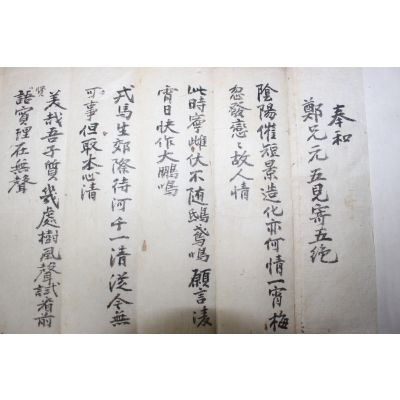 奉和
鄭兄元五見寄五絶
陰陽催短景造化亦何情一宵梅
忽發戀〻故人情
此時寧雌伏不随鴟鳶鳴願言凌
霄日快作大鵬鳴
戎馬生郊際待河千一清從令無
可事但取本心清
美哉吾子質幾處樹風聲試看前
賢語實理在無聲